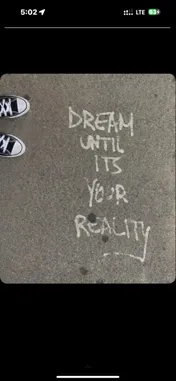 5:02
LTE 63
DREAM
UNTIL
ITS
YOUR
REALITY